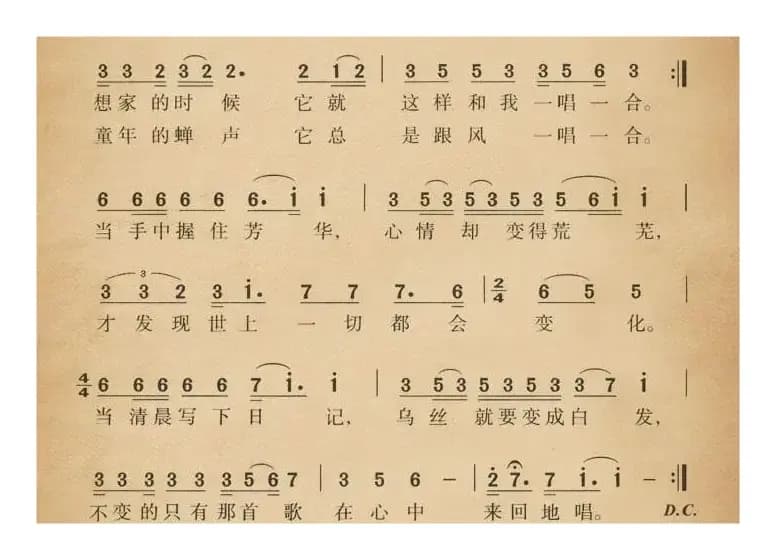 3 3 2 3 2 2. 2 1 2 | 3 5 5 3 3 5 6 3 :‖
想家的时候 它就 这样和我一唱一合。
童年的蝉声 它总 是跟风 一唱一合。
6 6 6 6 6 6 6. i i | 3 5 3 5 3 5 3 5 6 i i |
当手中握住芳 华, 心情却变得荒 芜,
3
3 3 2 3 i. 7 7 7. 6 | 2/4 6 5 5 |
才发现世上一切都会 变 化。
4/4 6 6 6 6 6 7 i. i | 3 5 3 5 3 5 3 3 7 i |
当清晨写下日 记, 乌丝就要变成白 发,
3 3 3 3 3 3 5 6 7 | 3 5 6 – | 2 7. 7 i. i – :‖
不变的只有那首歌 在心中 来回地唱。 D.C.